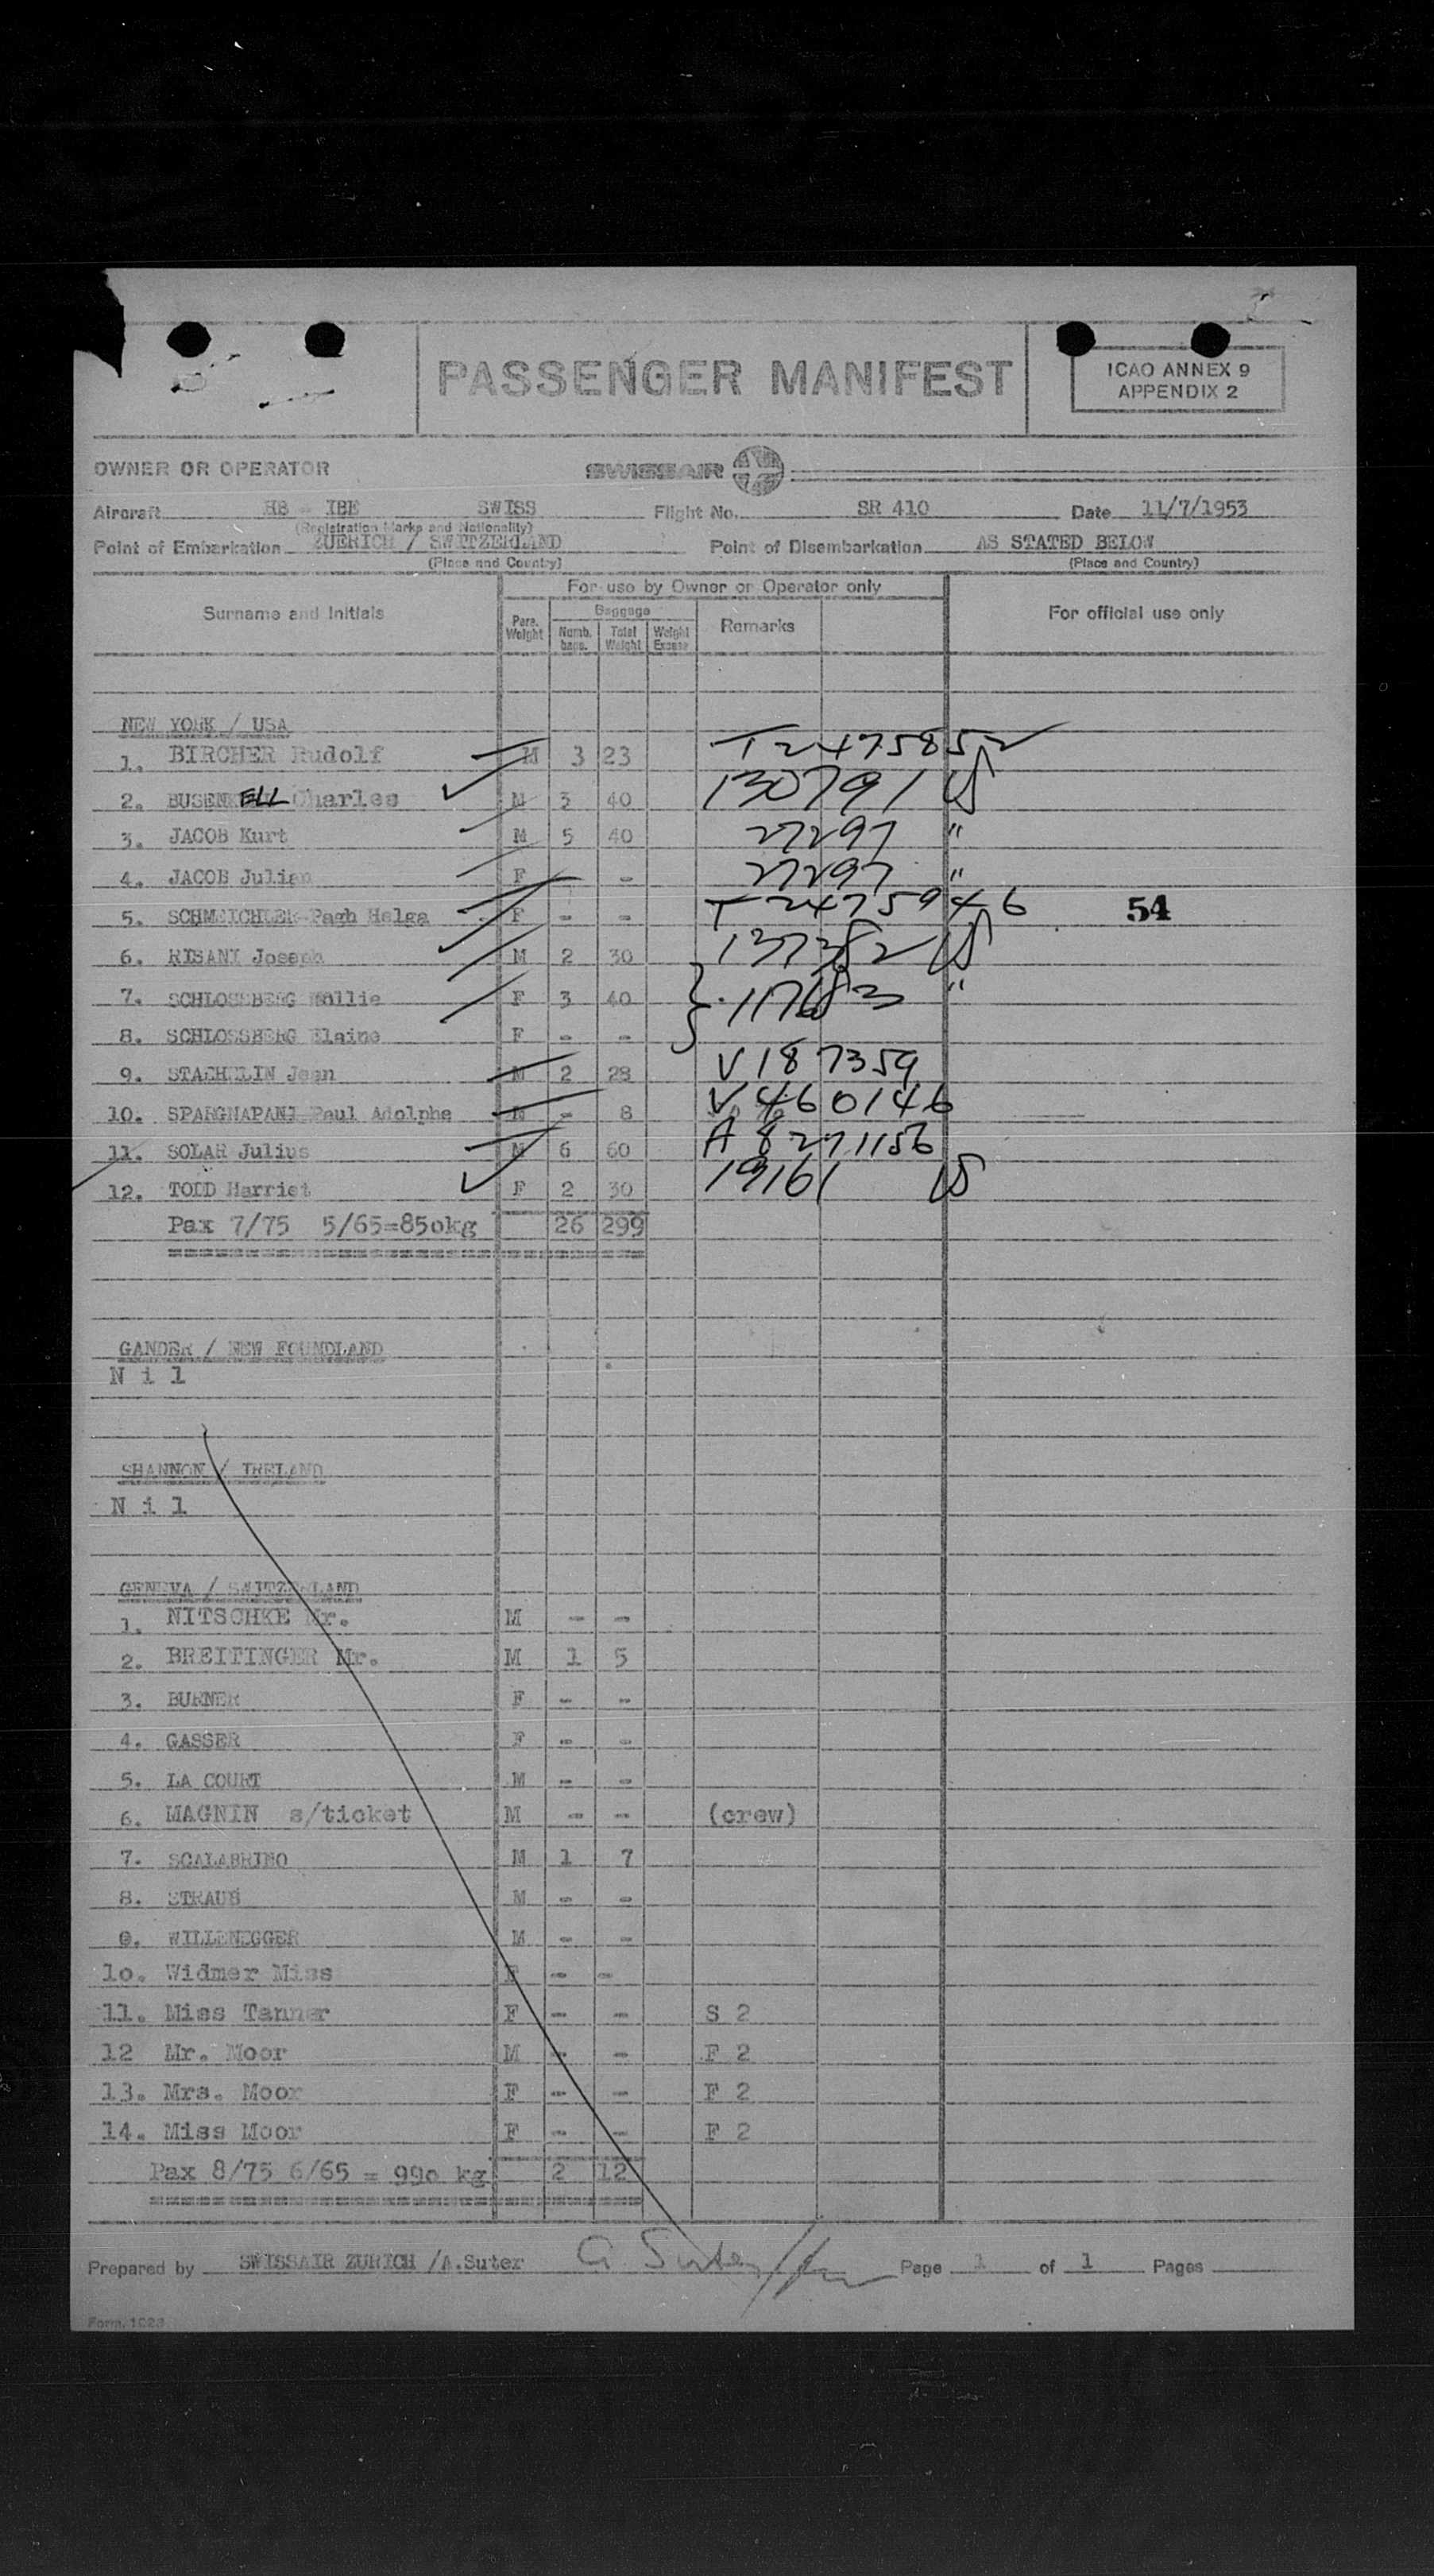 PASSENGER MANIFEST
ICAO ANNEX 9
APPENDIX 2
OWNER OR OPERATOR SWISSAIR
Aircraft HB - IBE SWISS Flight No. SR 410 Date 11/7/1953
(Registration Marks and Nationality)
Point of Embarkation ZUERICH / SWITZERLAND Point of Disembarkation AS STATED BELOW
(Place and Country) (Place and Country)
For use by Owner or Operator only
Surname and Initials Pass. Weight Baggage Numb. bags. Total Weight Weight Excess Remarks For official use only
NEW YORK / USA
1. BIRCHER Rudolf M 3 23 T 2475852
2. BUSENELL Charles M 3 40 130791 US
3. JACOB Kurt M 5 40 27297 "
4. JACOB Julian F - 27297 "
5. SCHMEICHLER-Pagh Helga F - - T 2475946 54
6. RISANI Joseph M 2 30 137382 US
7. SCHLOSSBERG Mollie F 3 40 "
8. SCHLOSSBERG Elaine F - -
9. STAEHELIN Jean M 2 28 V 187359
10. SPARGNAPANI Paul Adolphe M - 8 V 460146
11. SOLAR Julius M 6 60 A 8271156
12. TODD Harriet F 2 30 19161 US
Pax 7/75 5/65=850kg 26 299
GANDER / NEW FOUNDLAND
N i l
SHANNON / IRELAND
N i l
GENEVA / SWITZERLAND
1. NITSCHKE Mr. M - -
2. BREITINGER Mr. M 1 5
3. BURNER F - -
4. GASSER F - -
5. LA COURT M - -
6. MAGNIN s/ticket M - - (crew)
7. SCALABRINO M 1 7
8. STRAUB M - -
9. WILLENEGGER M - -
1o. Widmer Miss F - -
11. Miss Tanner F - - S 2
12 Mr. Moor M - - F 2
13. Mrs. Moor F - - F 2
14. Miss Moor F - - F 2
Pax 8/75 6/65 = 99o kg 2 12
Prepared by SWISSAIR ZURICH /A.Suter G. Suter Page 1 of 1 Pages
Form. 1028